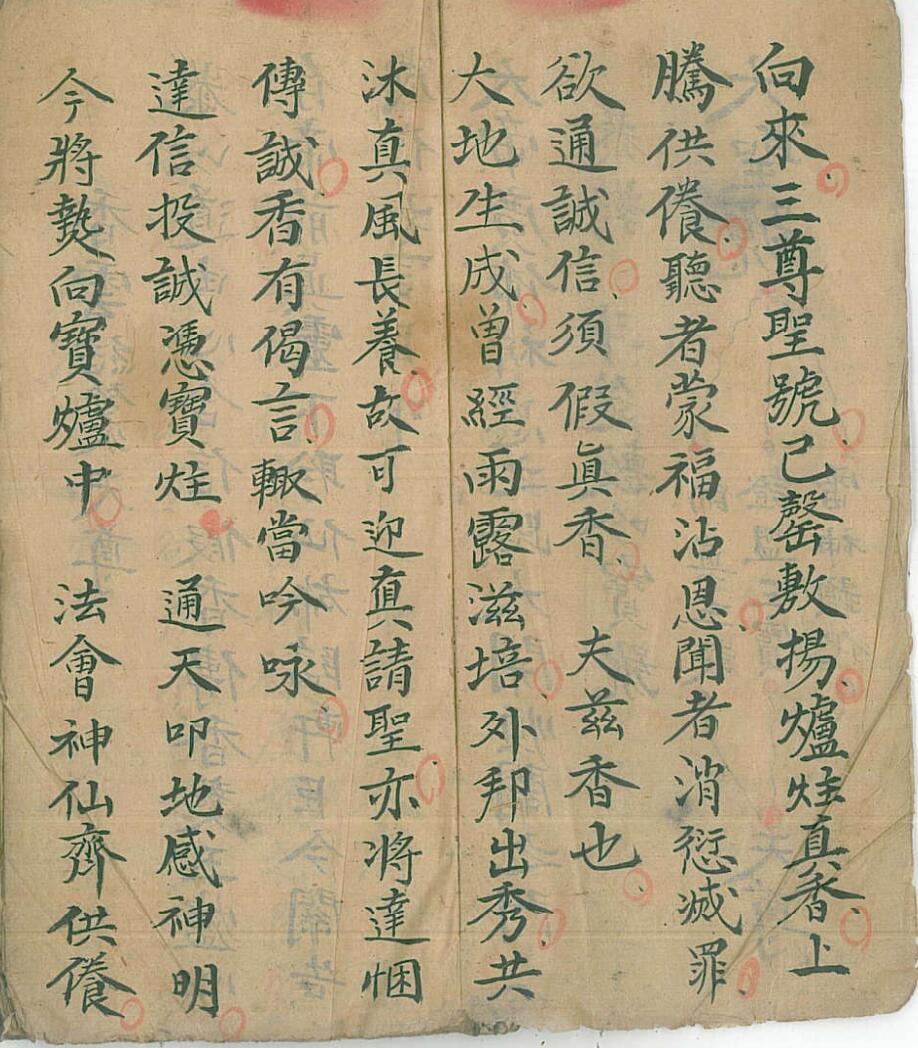 向來三尊聖號已罄敷揚爐炷真香上
騰供養聽者蒙福沾恩聞者消愆滅罪
欲通誠信須假真香 夫茲香也
大地生成曾經雨露滋培外邦出秀共
沐真風長養故可迎真請聖亦將達悃
傳誠香有偈言輙當吟咏
達信投誠憑寶炷 通天叩地感神明
今將爇向寶爐中 法會神仙齊供養